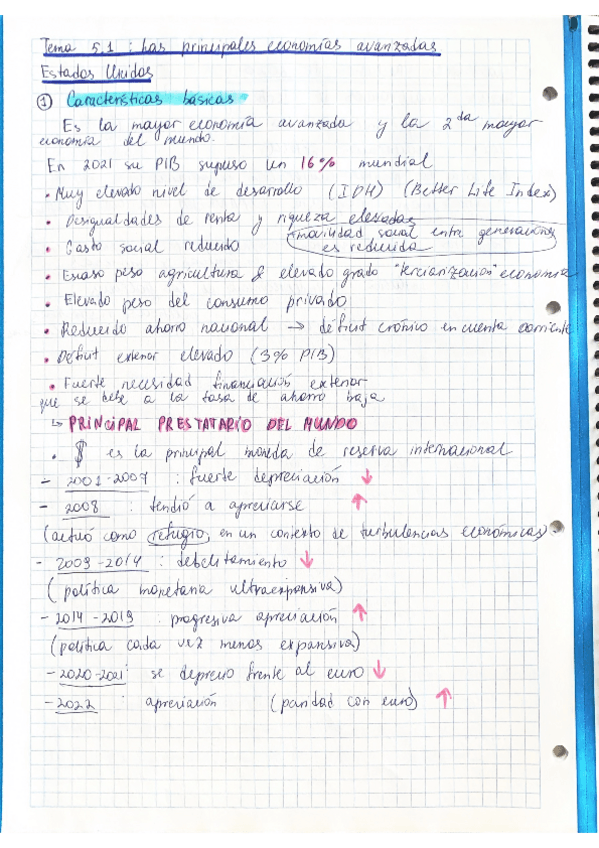 Tema 5.1 : Las principales economías avanzadas
Estados Unidos
① Características básicas
Es la mayor economía avanzada y la 2da mayor
economía del mundo.
En 2021 su PIB supuso un 16% mundial
• Muy elevado nivel de desarrollo (IDH) (Better Life Index)
• Desigualdades de renta y riqueza elevadas
movilidad social entre generaciones
• Gasto social reducido
es reducida
• Escaso peso agricultura & elevado grado "terciarización" economía
• Elevado peso del consumo privado
• Reducido ahorro nacional → déficit crónico en cuenta corriente
• Déficit exterior elevado (3% PIB)
• Fuerte necesidad financiación exterior
que se debe a la tasa de ahorro baja
↳ PRINCIPAL PRESTATARIO DEL MUNDO
• $ es la principal moneda de reserva internacional
- 2001-2007 : fuerte depreciación ↓
- 2008 : tendió a apreciarse ↑
(actuó como refugio, en un contexto de turbulencias económicas)
- 2009-2014 : debilitamiento ↓
(política monetaria ultraexpansiva)
- 2014-2019 : progresiva apreciación ↑
(política cada vez menos expansiva)
- 2020-2021 : se deprecio frente al euro ↓
- 2022 : apreciación (paridad con euro) ↑